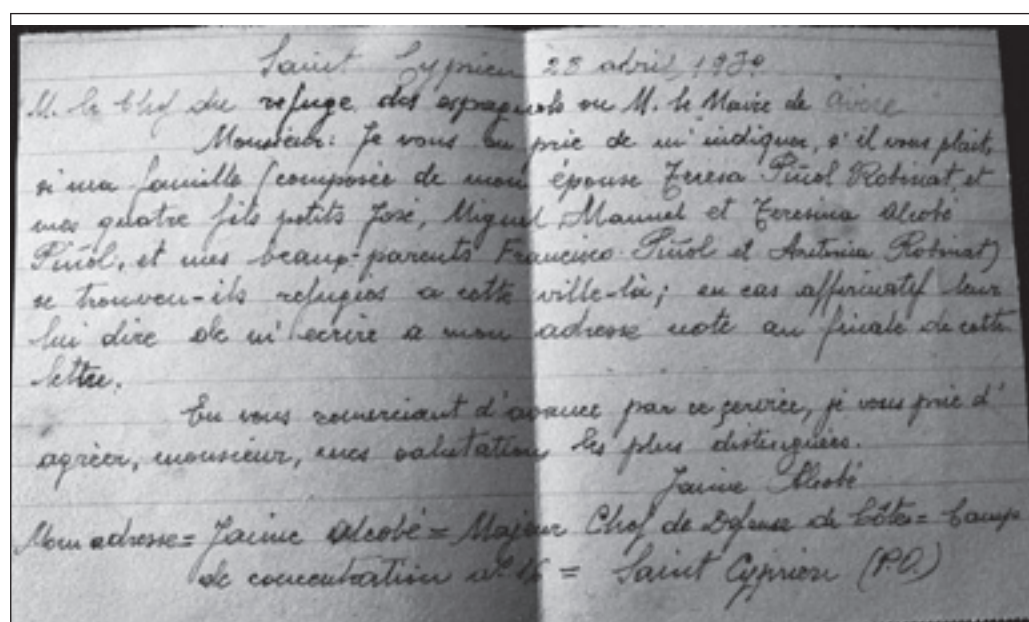 Saint Cyprien 23 abril, 1939
M. le Chef du refuge des espagnols ou M. le Maire de
Monsieur: Je vous en prie de m'indiquer, s'il vous plait,
si ma famille (composée de mon épouse Teresa Piñol Robinat, et
mes quatre fils petits José, Miguel, Manuel et Teresina Alcobé
Piñol, et mes beaux-parents Francisco Piñol et Antonia Robinat)
se trouven-ils refugiés a cette ville-là; en cas affirmatif leur
lui dire de m'ecrire a mon adresse noté au finale de cette
lettre.
En vous remerciant d'avance par ce service, je vous prie d'
agréer, monsieur, mes salutations les plus distinguées.
Jaime Alcobé
Mon adresse = Jaime Alcobé = Majeur Chef de Defense de Côtes = Camp
de concentration nº 16 = Saint Cyprien (P.O.)